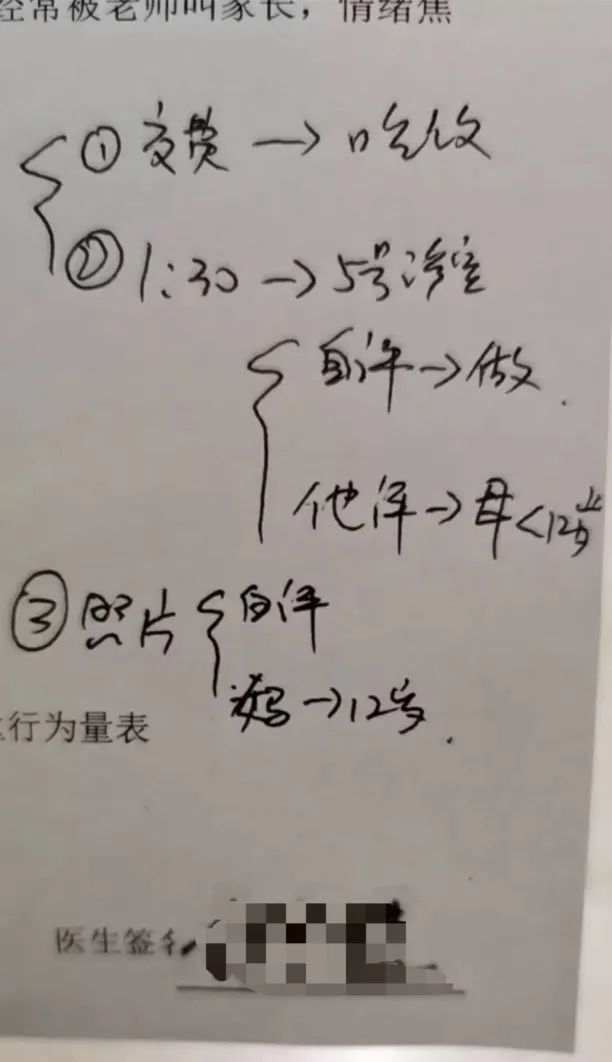 经常被老师叫家长，情绪焦
① 交费 → 吃饭
② 1:30 → 5号诊室
自评 → 做.
他评 → 母<12岁
③ 照片 自评
妈 → 12岁.
行为量表
医生签名